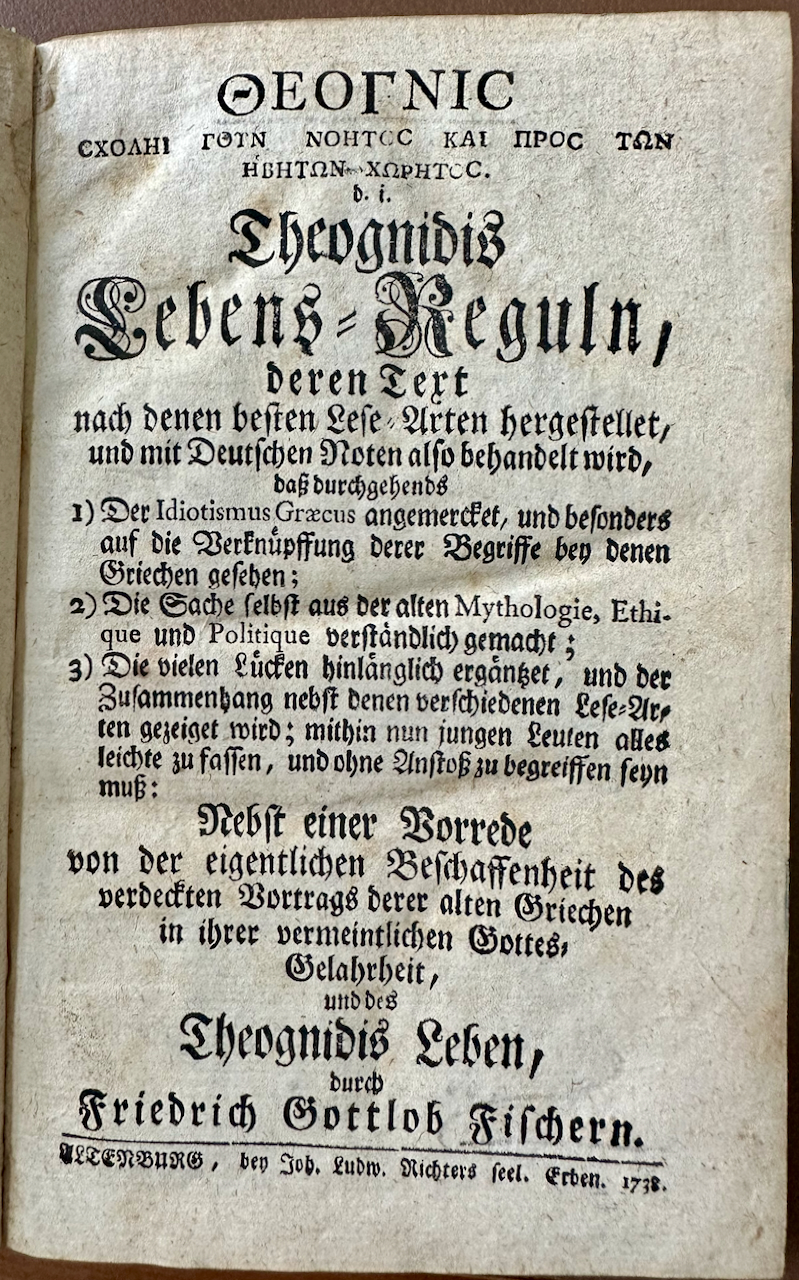 ΘΕΟΓΝΙϹ
ϹΧΟΛΗΙ ΓΟΥΝ ΝΟΗΤΟϹ ΚΑΙ ΠΡΟϹ ΤΩΝ
ἩΒΗΤΩΝ ΧΩΡΗΤΟϹ.
d. i.
Theognidis
Lebens-Reguln,
deren Text
nach denen besten Lese-Arten hergestellet,
und mit Deutschen Noten also behandelt wird,
daß durchgehends
1) Der Idiotismus Græcus angemercket, und besonders
auf die Verknüpffung derer Begriffe bey denen
Griechen gesehen;
2) Die Sache selbst aus der alten Mythologie, Ethi-
que und Politique verständlich gemacht;
3) Die vielen Lücken hinlänglich ergäntzet, und der
Zusammenhang nebst denen verschiedenen Lese-Ar-
ten gezeiget wird; mithin nun jungen Leuten alles
leichte zu fassen, und ohne Anstoß zu begreiffen seyn
muß:
Nebst einer Vorrede
von der eigentlichen Beschaffenheit des
verdeckten Vortrags derer alten Griechen
in ihrer vermeintlichen Gottes-
Gelahrheit,
und des
Theognidis Leben,
durch
Friedrich Gottlob Fischern.
ALTENBURG, bey Joh. Ludw. Richters seel. Erben. 1738.